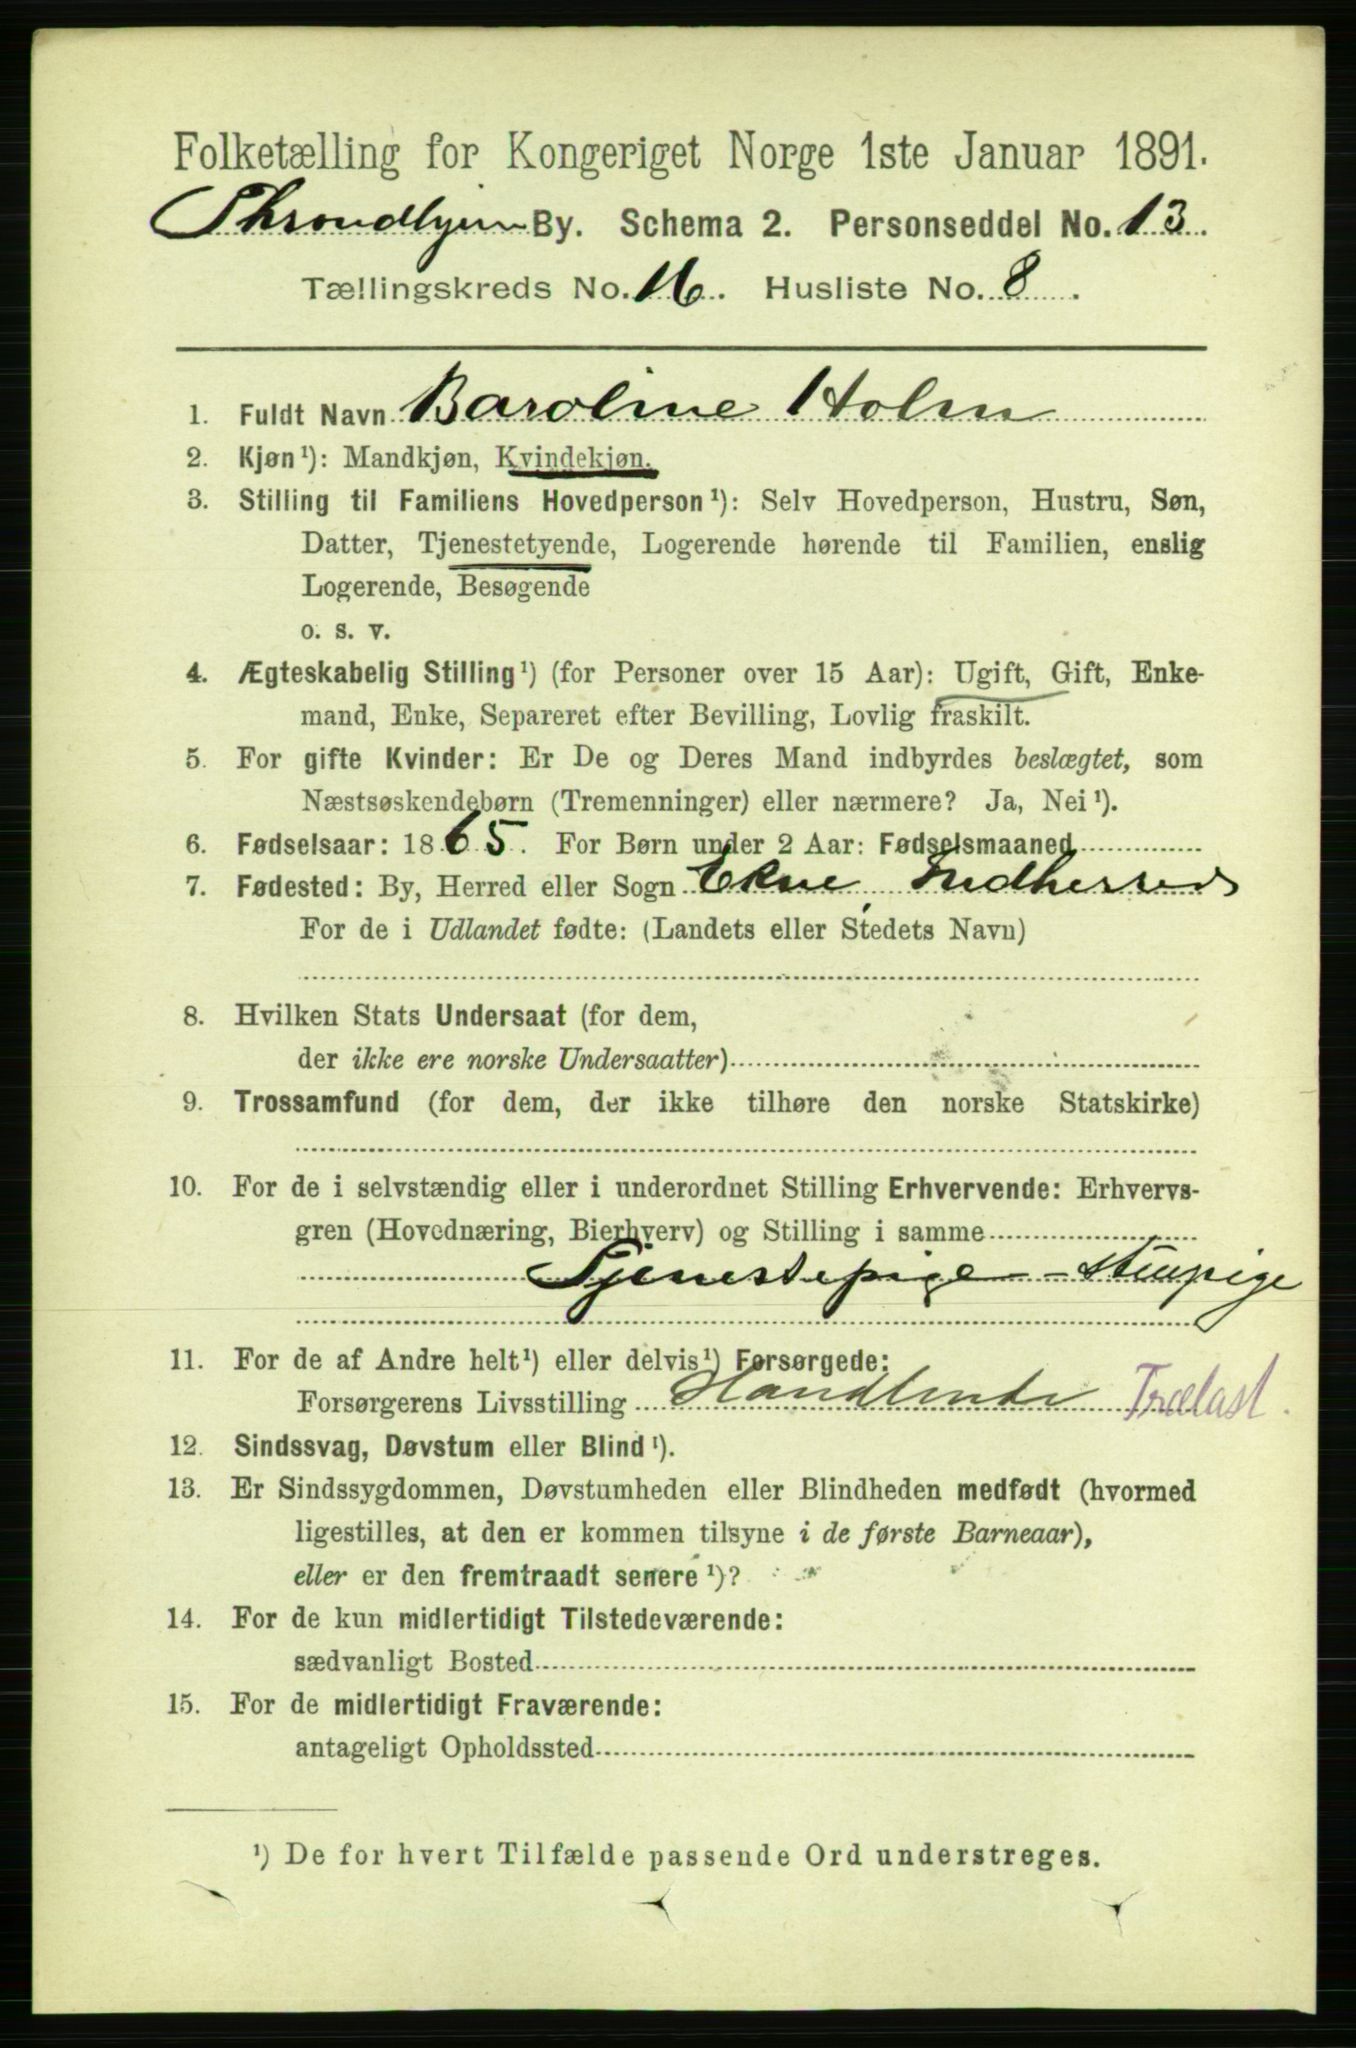 Folketælling for Kongeriget Norge 1ste Januar 1891.
Throndhjem By. Schema 2. Personseddel No. 13.
Tællingskreds No. 16. Husliste No. 8.
1. Fuldt Navn Baroline Holm
2. Kjøn¹): Mandkjøn, Kvindekjøn.
3. Stilling til Familiens Hovedperson¹): Selv Hovedperson, Hustru, Søn,
Datter, Tjenestetyende, Logerende hørende til Familien, enslig
Logerende, Besøgende
o. s. v.
4. Ægteskabelig Stilling¹) (for Personer over 15 Aar): Ugift, Gift, Enke-
mand, Enke, Separeret efter Bevilling, Lovlig fraskilt.
5. For gifte Kvinder: Er De og Deres Mand indbyrdes beslægtet, som
Næstsøskendebørn (Tremenninger) eller nærmere? Ja, Nei¹).
6. Fødselsaar: 1865. For Børn under 2 Aar: Fødselsmaaned
7. Fødested: By, Herred eller Sogn Ekne, Indherred
For de i Udlandet fødte: (Landets eller Stedets Navn)
8. Hvilken Stats Undersaat (for dem,
der ikke ere norske Undersaatter)
9. Trossamfund (for dem, der ikke tilhøre den norske Statskirke)
10. For de i selvstændig eller i underordnet Stilling Erhvervende: Erhvervs-
gren (Hovednæring, Bierhverv) og Stilling i samme
Tjenestepige - Stuepige
11. For de af Andre helt¹) eller delvis¹) Forsørgede:
Forsørgerens Livsstilling Handlende Trælast.
12. Sindssvag, Døvstum eller Blind¹).
13. Er Sindssygdommen, Døvstumheden eller Blindheden medfødt (hvormed
ligestilles, at den er kommen tilsyne i de første Barneaar),
eller er den fremtraadt senere¹)?
14. For de kun midlertidigt Tilstedeværende:
sædvanligt Bosted
15. For de midlertidigt Fraværende:
antageligt Opholdssted
¹) De for hvert Tilfælde passende Ord understreges.